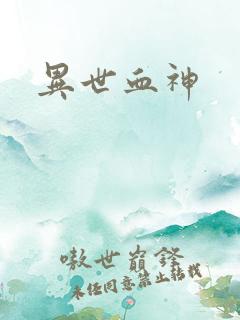 異世血神
嗷世巔鋒
未經同意禁止轉載